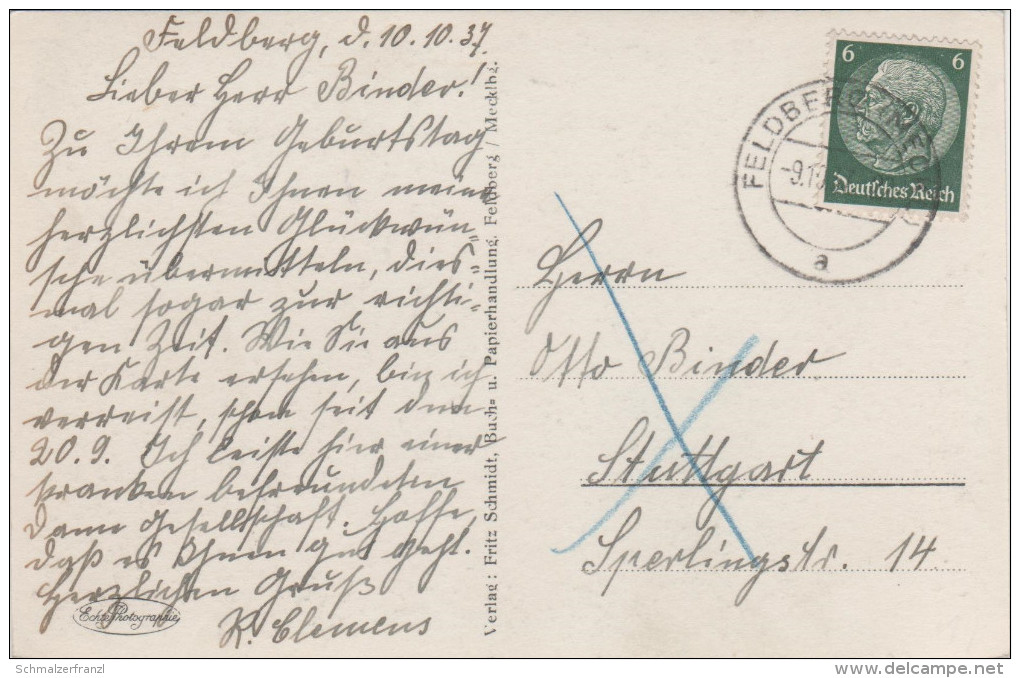 Feldberg, d. 10.10.37.
Lieber Herr Binder!
Zu Ihrem Geburtstag
möchte ich Ihnen meine
herzlichsten Glückwün=
sche übermitteln, dies=
mal sogar zur richti=
gen Zeit. Wie Sie aus
der Karte ersehen, bin ich
verreist, schon seit dem
20.9. Ich leiste hier einer
kranken befreundeten
Dame Gesellschaft. Hoffe,
daß es Ihnen gut geht.
Herzlichen Gruß
K. Clemens
Echte Photographie
Verlag: Fritz Schmidt, Buch= u. Papierhandlung, Feldberg / Mecklbg.
6 6
Deutsches Reich
FELDBERG (MECKL)
-9.10
a
Herrn
Otto Binder
Stuttgart
Sperlingstr. 14
Schmalzerfranzl
delcampe.net